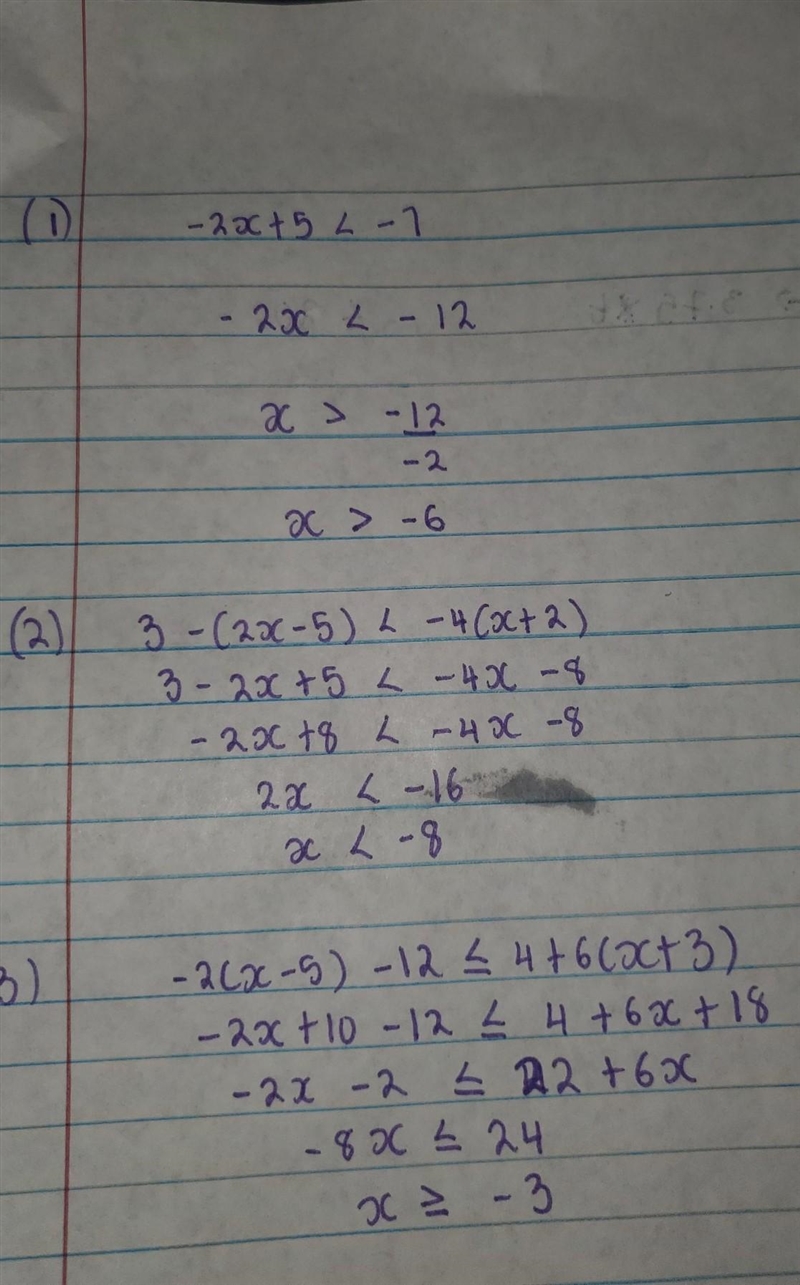 (1) -2x+5 < -7
-2x < -12
x > -12
-2
x > -6
(2) 3 -(2x-5) < -4(x+2)
3 - 2x +5 < -4x -8
-2x +8 < -4x -8
2x < -16
x < -8
3) -2(x-5) -12 ≤ 4+6(x+3)
-2x+10 -12 ≤ 4 +6x+18
-2x -2 ≤ 22 +6x
-8x ≤ 24
x ≥ -3